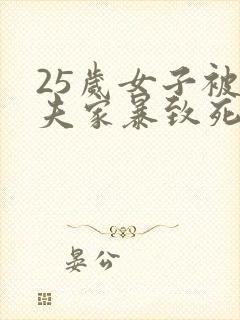 25歲女子被
夫家暴致死
晏公